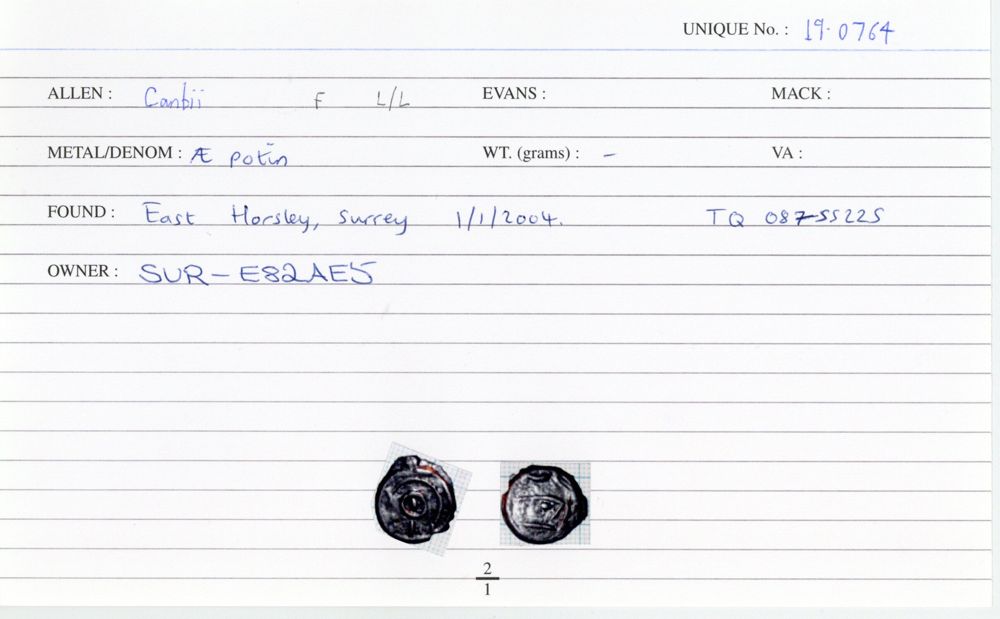 UNIQUE No. : 19.0764
ALLEN : Cantii F L/L EVANS : MACK :
METAL/DENOM : Æ potin WT. (grams) : – VA :
FOUND : East Horsley, Surrey 1/1/2004. TQ 087-55225
OWNER : SUR-E82AE5
2
1